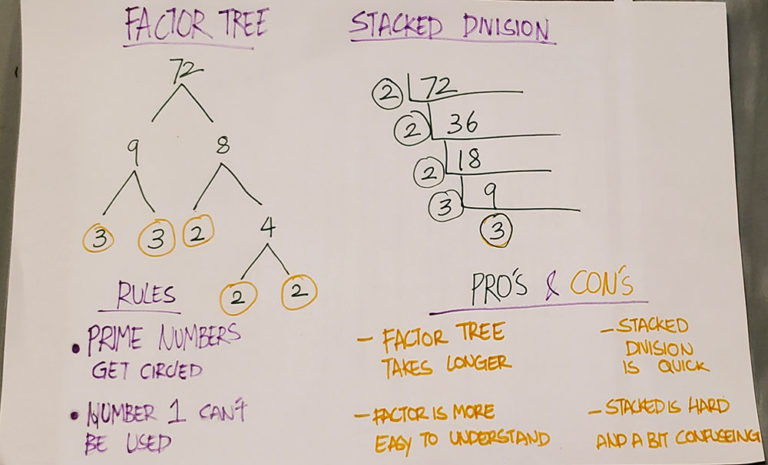 FACTOR TREE
72
9 8
3 3 2 4
2 2
STACKED DIVISION
2 72
2 36
2 18
3 9
3
RULES
• PRIME NUMBERS
GET CIRCLED
• NUMBER 1 CAN'T
BE USED
PRO'S & CON'S
- FACTOR TREE
TAKES LONGER
- FACTOR IS MORE
EASY TO UNDERSTAND
- STACKED
DIVISION
IS QUICK
- STACKED IS HARD
AND A BIT CONFUSEING